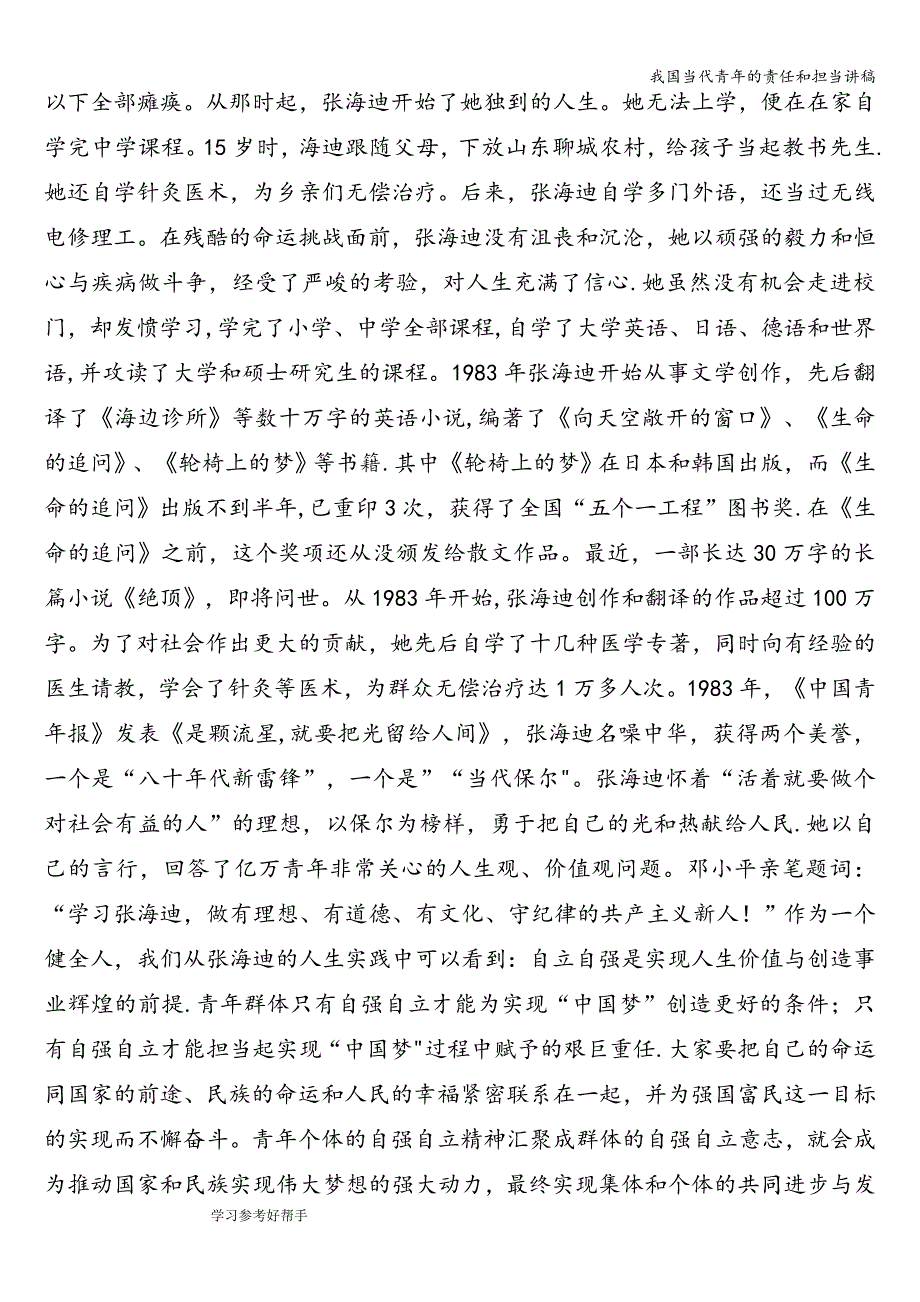 我国当代青年的责任和担当讲稿
以下全部瘫痪。从那时起，张海迪开始了她独到的人生。她无法上学，便在在家自
学完中学课程。15 岁时，海迪跟随父母，下放山东聊城农村，给孩子当起教书先生.
她还自学针灸医术，为乡亲们无偿治疗。后来，张海迪自学多门外语，还当过无线
电修理工。在残酷的命运挑战面前，张海迪没有沮丧和沉沦，她以顽强的毅力和恒
心与疾病做斗争，经受了严峻的考验，对人生充满了信心.她虽然没有机会走进校
门，却发愤学习,学完了小学、中学全部课程,自学了大学英语、日语、德语和世界
语,并攻读了大学和硕士研究生的课程。1983 年张海迪开始从事文学创作，先后翻
译了《海边诊所》等数十万字的英语小说,编著了《向天空敞开的窗口》、《生命
的追问》、《轮椅上的梦》等书籍.其中《轮椅上的梦》在日本和韩国出版，而《生
命的追问》出版不到半年,已重印 3 次，获得了全国“五个一工程”图书奖.在《生
命的追问》之前，这个奖项还从没颁发给散文作品。最近，一部长达 30 万字的长
篇小说《绝顶》，即将问世。从 1983 年开始,张海迪创作和翻译的作品超过 100 万
字。为了对社会作出更大的贡献，她先后自学了十几种医学专著，同时向有经验的
医生请教，学会了针灸等医术，为群众无偿治疗达 1 万多人次。1983 年，《中国青
年报》发表《是颗流星,就要把光留给人间》，张海迪名噪中华，获得两个美誉，
一个是“八十年代新雷锋”，一个是”“当代保尔"。张海迪怀着“活着就要做个
对社会有益的人”的理想，以保尔为榜样，勇于把自己的光和热献给人民.她以自
己的言行，回答了亿万青年非常关心的人生观、价值观问题。邓小平亲笔题词：
“学习张海迪，做有理想、有道德、有文化、守纪律的共产主义新人！”作为一个
健全人，我们从张海迪的人生实践中可以看到：自立自强是实现人生价值与创造事
业辉煌的前提.青年群体只有自强自立才能为实现“中国梦”创造更好的条件；只
有自强自立才能担当起实现“中国梦"过程中赋予的艰巨重任.大家要把自己的命运
同国家的前途、民族的命运和人民的幸福紧密联系在一起，并为强国富民这一目标
的实现而不懈奋斗。青年个体的自强自立精神汇聚成群体的自强自立意志，就会成
为推动国家和民族实现伟大梦想的强大动力，最终实现集体和个体的共同进步与发
学习参考好帮手